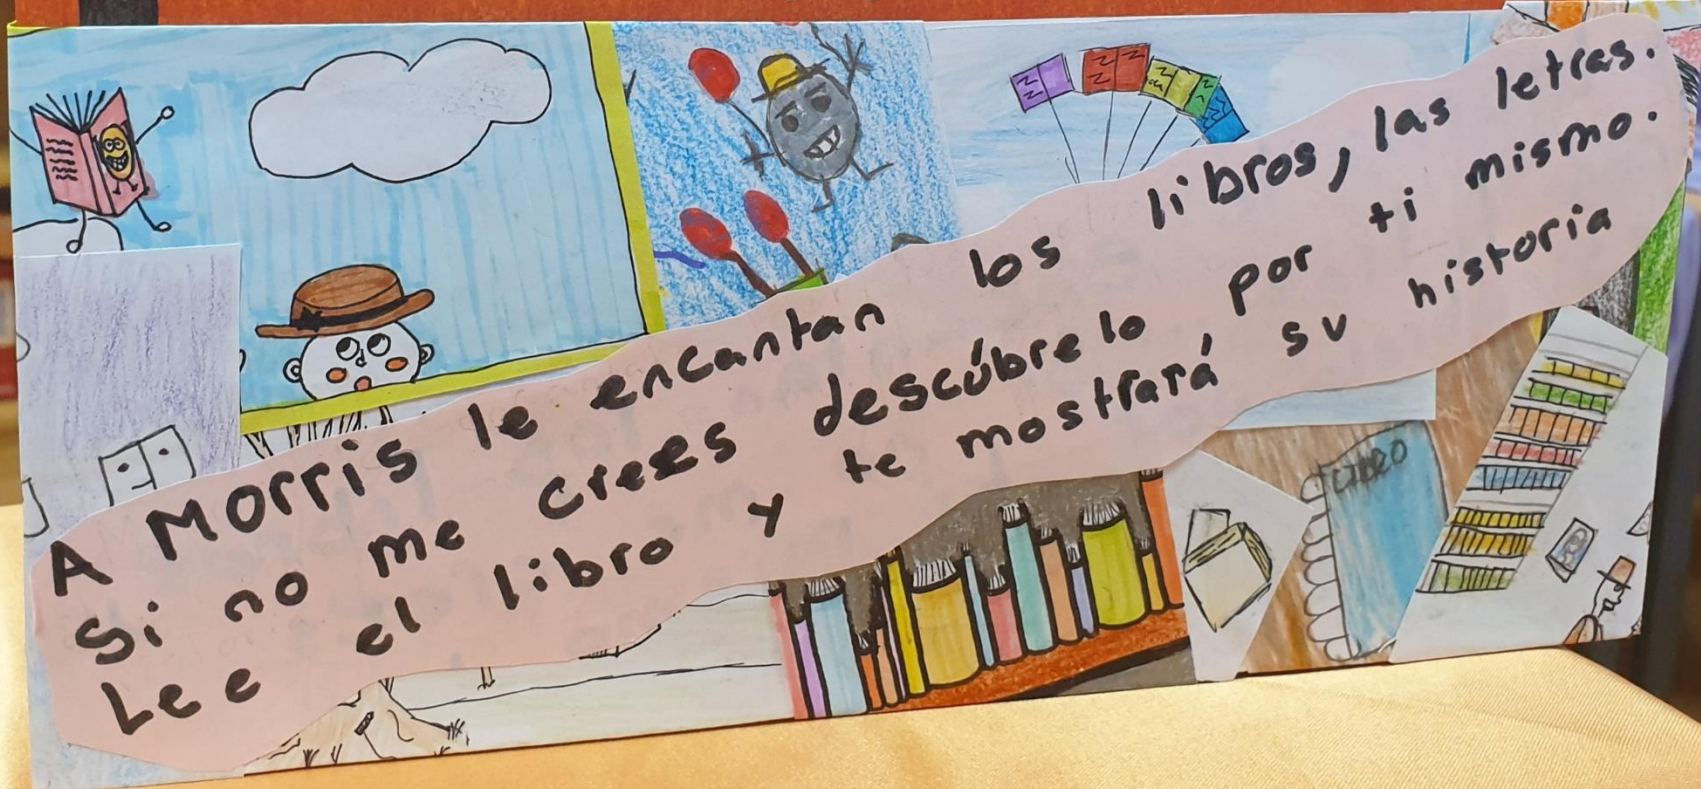 A Morris le encantan los libros, las letras.
Si no me crees descúbrelo por ti mismo.
Lee el libro y te mostrará, su historia
LIBRO